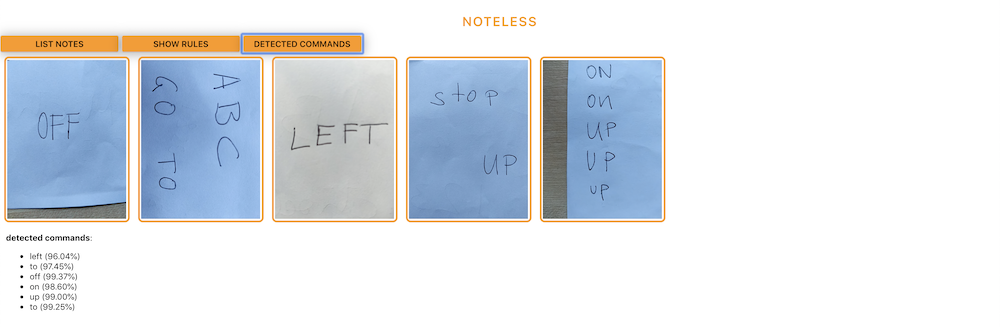 NOTELESS
LIST NOTES
SHOW RULES
DETECTED COMMANDS
OFF
ABC
GO TO
LEFT
stop
UP
ON
on
UP
UP
up
detected commands:
left (96.04%)
to (97.45%)
off (99.37%)
on (98.60%)
up (99.00%)
to (99.25%)